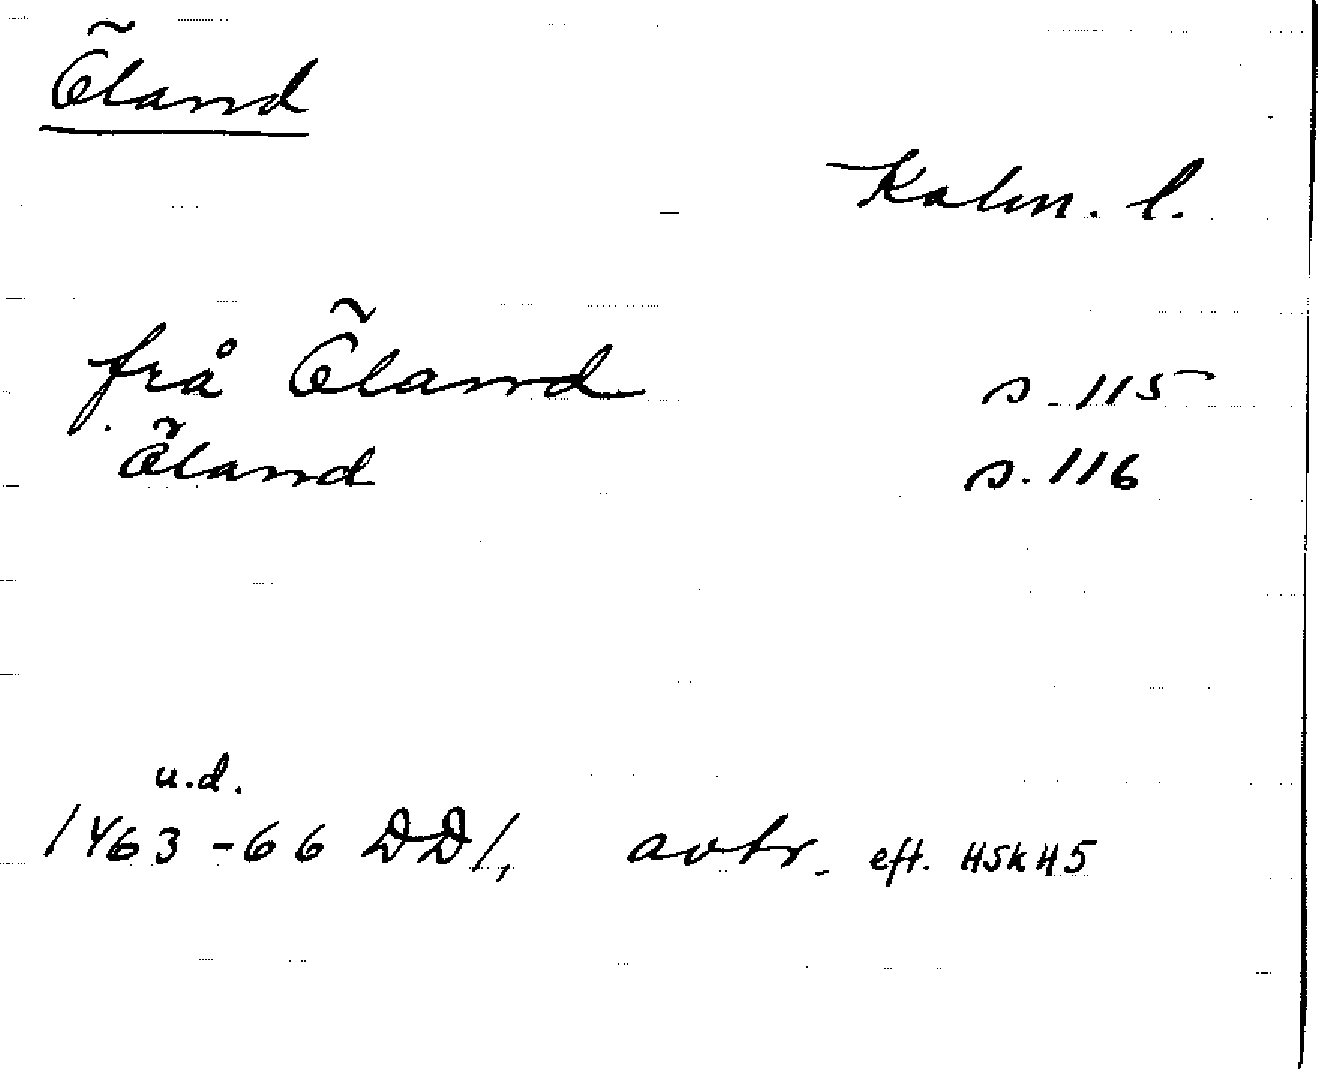 Öland
Kalm. l.
frå Öland s. 115
Öland s. 116
u.d.
1463-66 DD1, avtr. eft. HSH 5